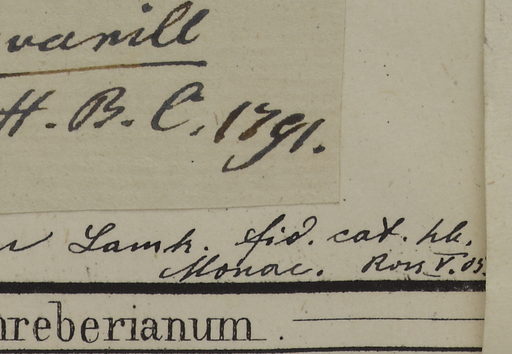 vanill
H. B. C. 1791.
Lamk. fid. cat. hb.
Monac. Ross V. 05
hreberianum.